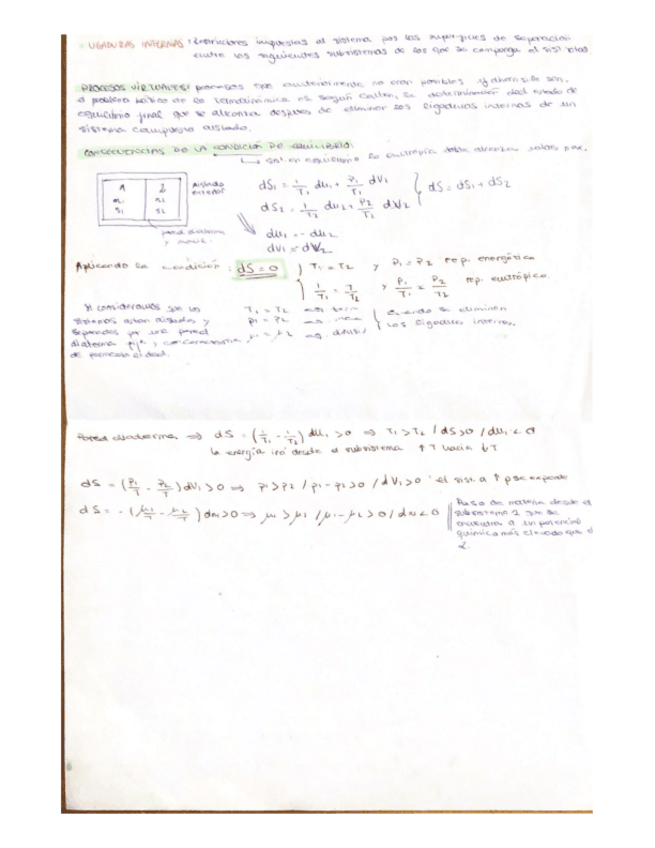 · LIGADURAS INTERNAS: Restricciones impuestas al sistema por las superficies de separación
entre los siguientes subsistemas de los que se componga el sist. total
PROCESOS VIRTUALES: procesos que anteriormente no eran posibles y ahora sí lo son.
el problema básico de la Termodinámica es según Callen, la determinación del estado de
equilibrio final que se alcanza después de eliminar las ligaduras internas de un
sistema compuesto aislado.
CONSECUENCIAS DE LA CONDICIÓN DE EQUILIBRIO:
↳ sist. en equilibrio la entropía debe alcanzar valor max.
1 2
aislado
exterior
pared diaterma
y móvil.
dS₁ = 1/T₁ dU₁ + P₁/T₁ dV₁
dS₂ = 1/T₂ dU₂ + P₂/T₂ dV₂
} dS = dS₁ + dS₂
dU₁ = - dU₂
dV₁ = dV₂
Aplicando la condición: dS = 0 } T₁ = T₂ y P₁ = P₂ rep. energética
1/T₁ = 1/T₂ y P₁/T₁ = P₂/T₂ rep. entrópica.
Si consideramos que los
sistemas están aislados y
separados por una pared
diaterma fija, y con
de permeabilidad.
T₁ = T₂
P₁ = P₂
μ₁ = μ₂
cuando se eliminan
las ligaduras internas.
Pared diaterma ⇒ dS = (1/T₁ - 1/T₂) dU₁ > 0 ⇒ T₁ > T₂ / dS > 0 / dU₁ < 0
la energía irá desde el subsistema ↑T hacia ↓T
dS = (P₁/T - P₂/T) dV₁ > 0 ⇒ P₁ > P₂ / P₁ - P₂ > 0 / dV₁ > 0 el sist. a ↑P se expande
dS = - (μ₁/T - μ₂/T) dn > 0 ⇒ μ₁ > μ₂ / μ₁ - μ₂ > 0 / dn < 0
Paso de materia desde el
subsistema 1 que se
encuentra a un potencial
químico más elevado que el
2.